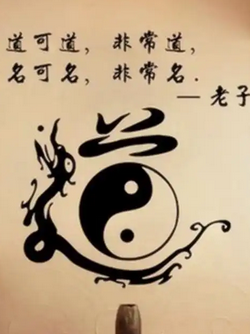 道可道，非常道，
名可名，非常名.
—老子
道